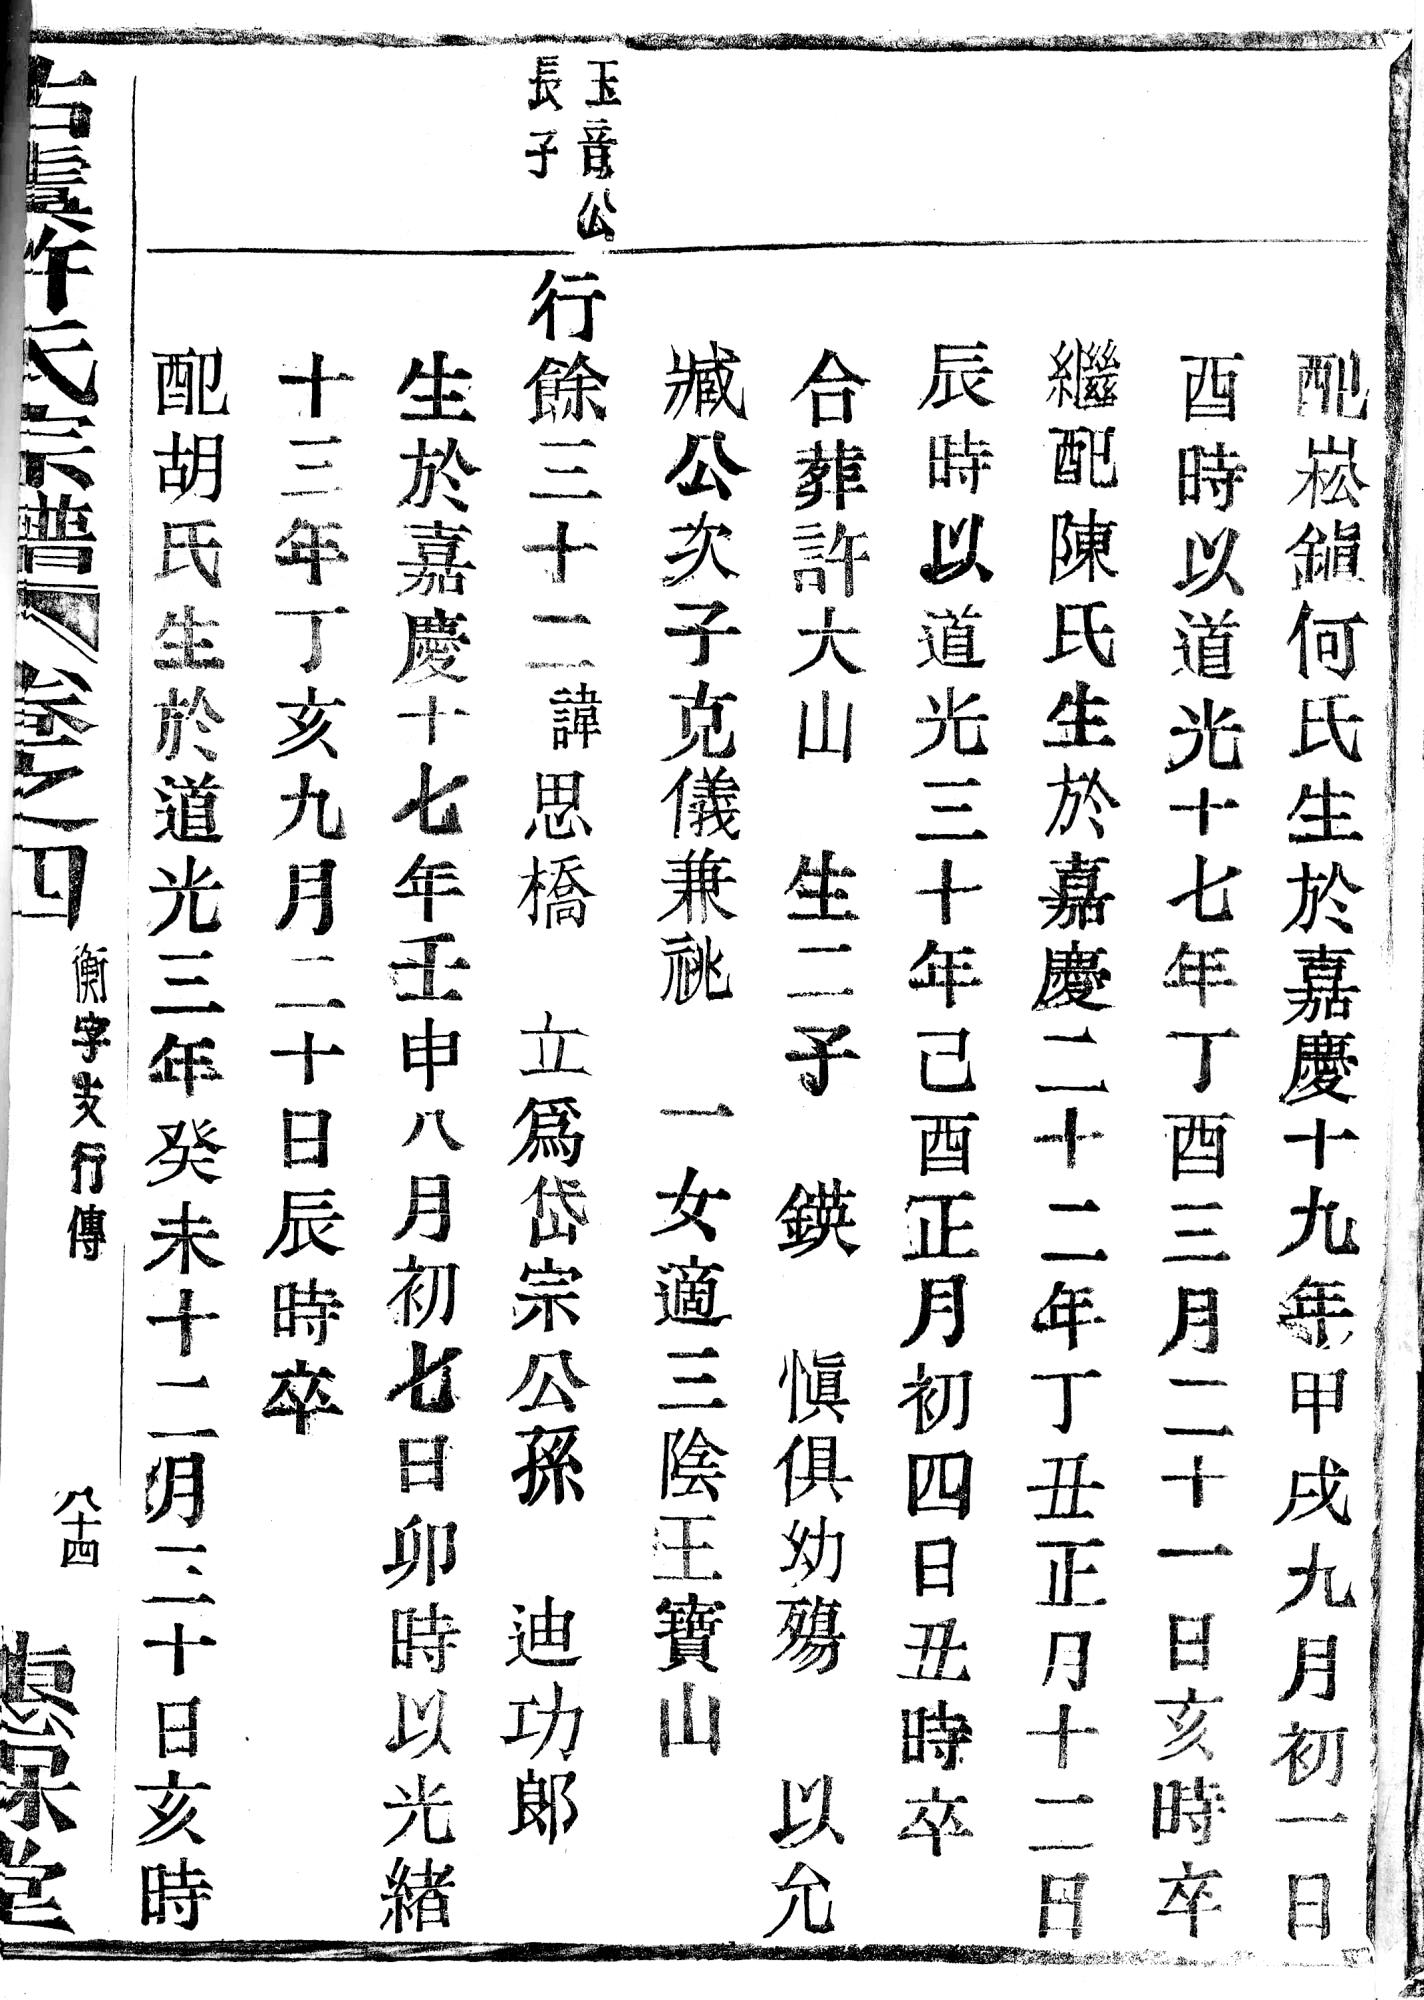 配崧鎭何氏生於嘉慶十九年甲戌九月初一日
酉時以道光十七年丁酉三月二十一日亥時卒
繼配陳氏生於嘉慶二十二年丁丑正月十二日
辰時以道光三十年己酉正月初四日丑時卒
合葬許大山　生二子　鍈　愼俱幼殤　以允
臧公次子克儀兼祧　一女適三陰王寶山
玉音公
長子
行餘三十二諱思橋　立爲岱宗公孫　迪功郞
生於嘉慶十七年壬申八月初七日卯時以光緖
十三年丁亥九月二十日辰時卒
配胡氏生於道光三年癸未十二月三十日亥時
古虞許氏宗譜 卷之四
衡字支行傳
八十四
惠保堂